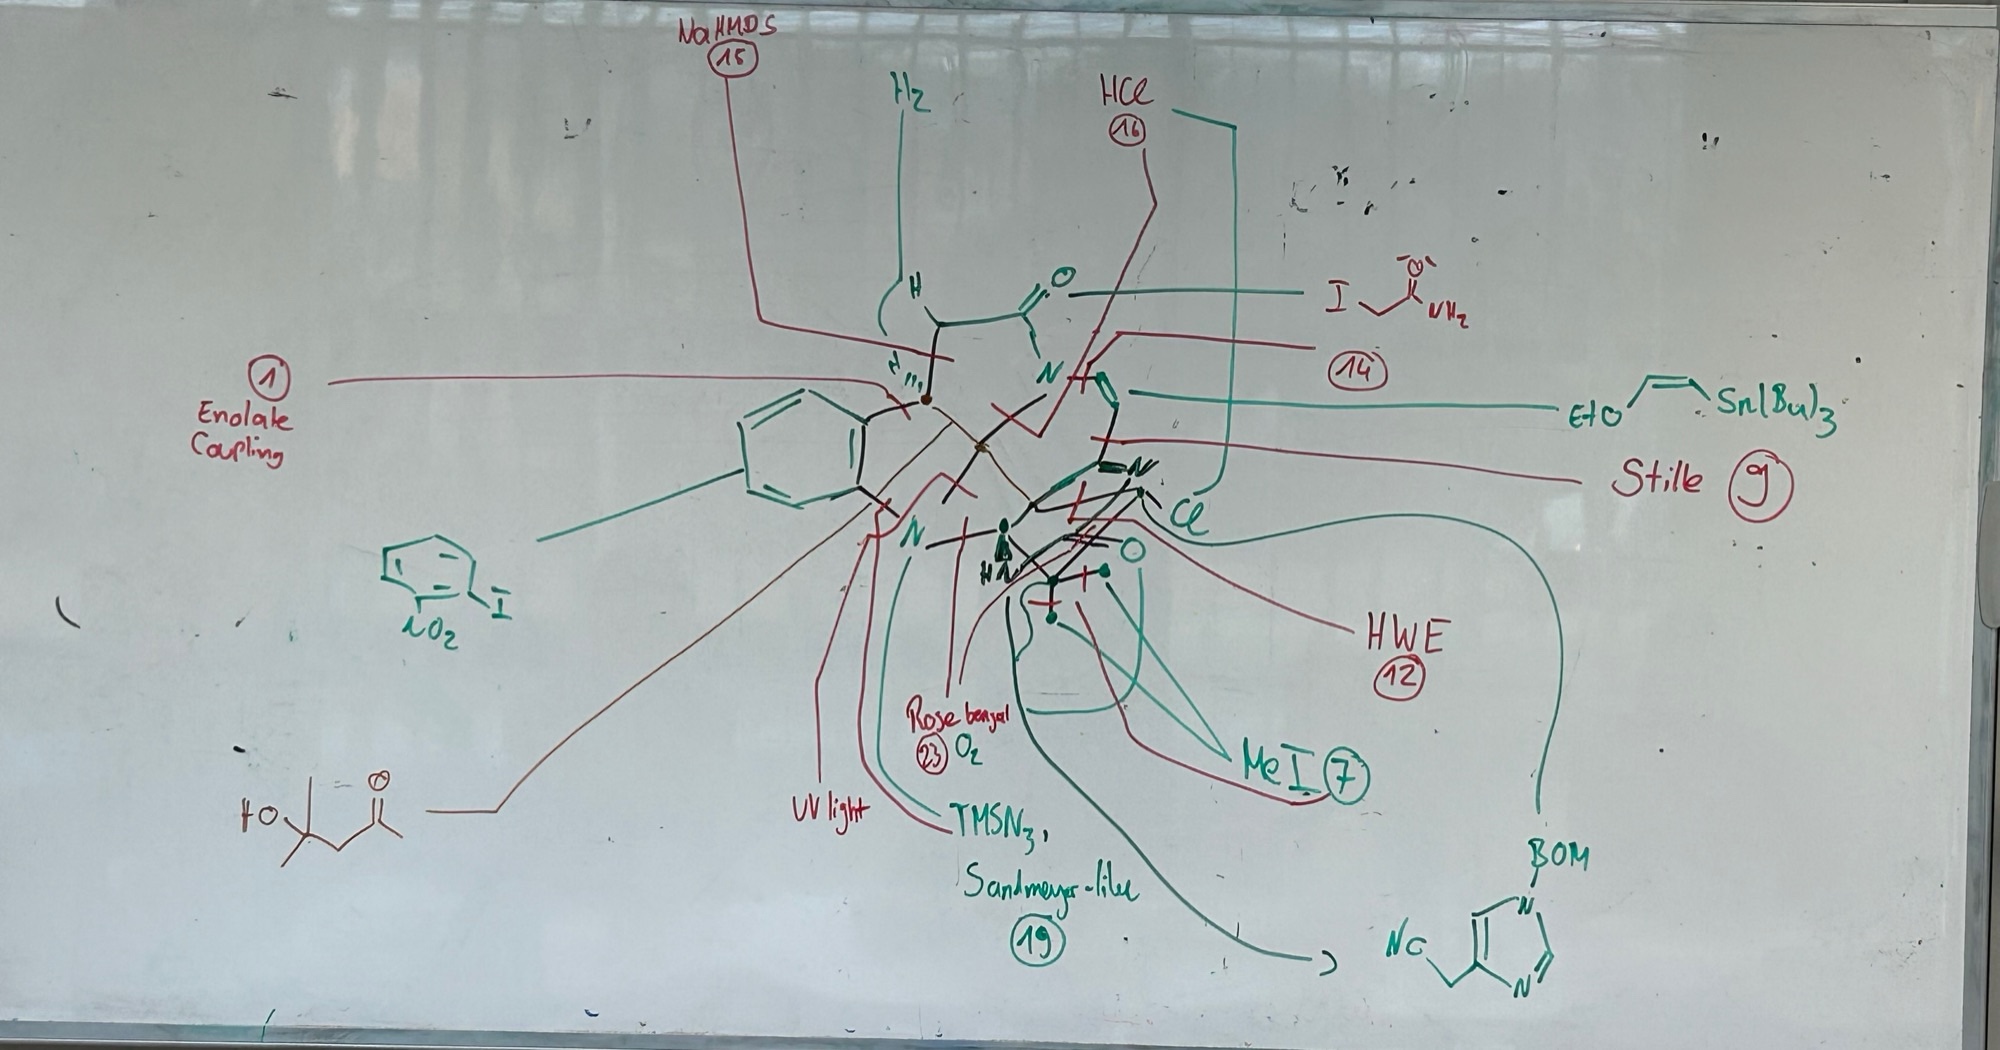 NaHMDS
15
H2
HCl
16
H
O
I
O
NH2
14
N
H
1
Enolate
Coupling
EtO
Sn(Bu)3
Stille 9
N
Cl
N
O
H
I
NO2
HWE
12
Rose bengal
23 O2
MeI 7
HO
O
UV light
TMSN3,
Sandmeyer-like
19
BOM
N
NC
N